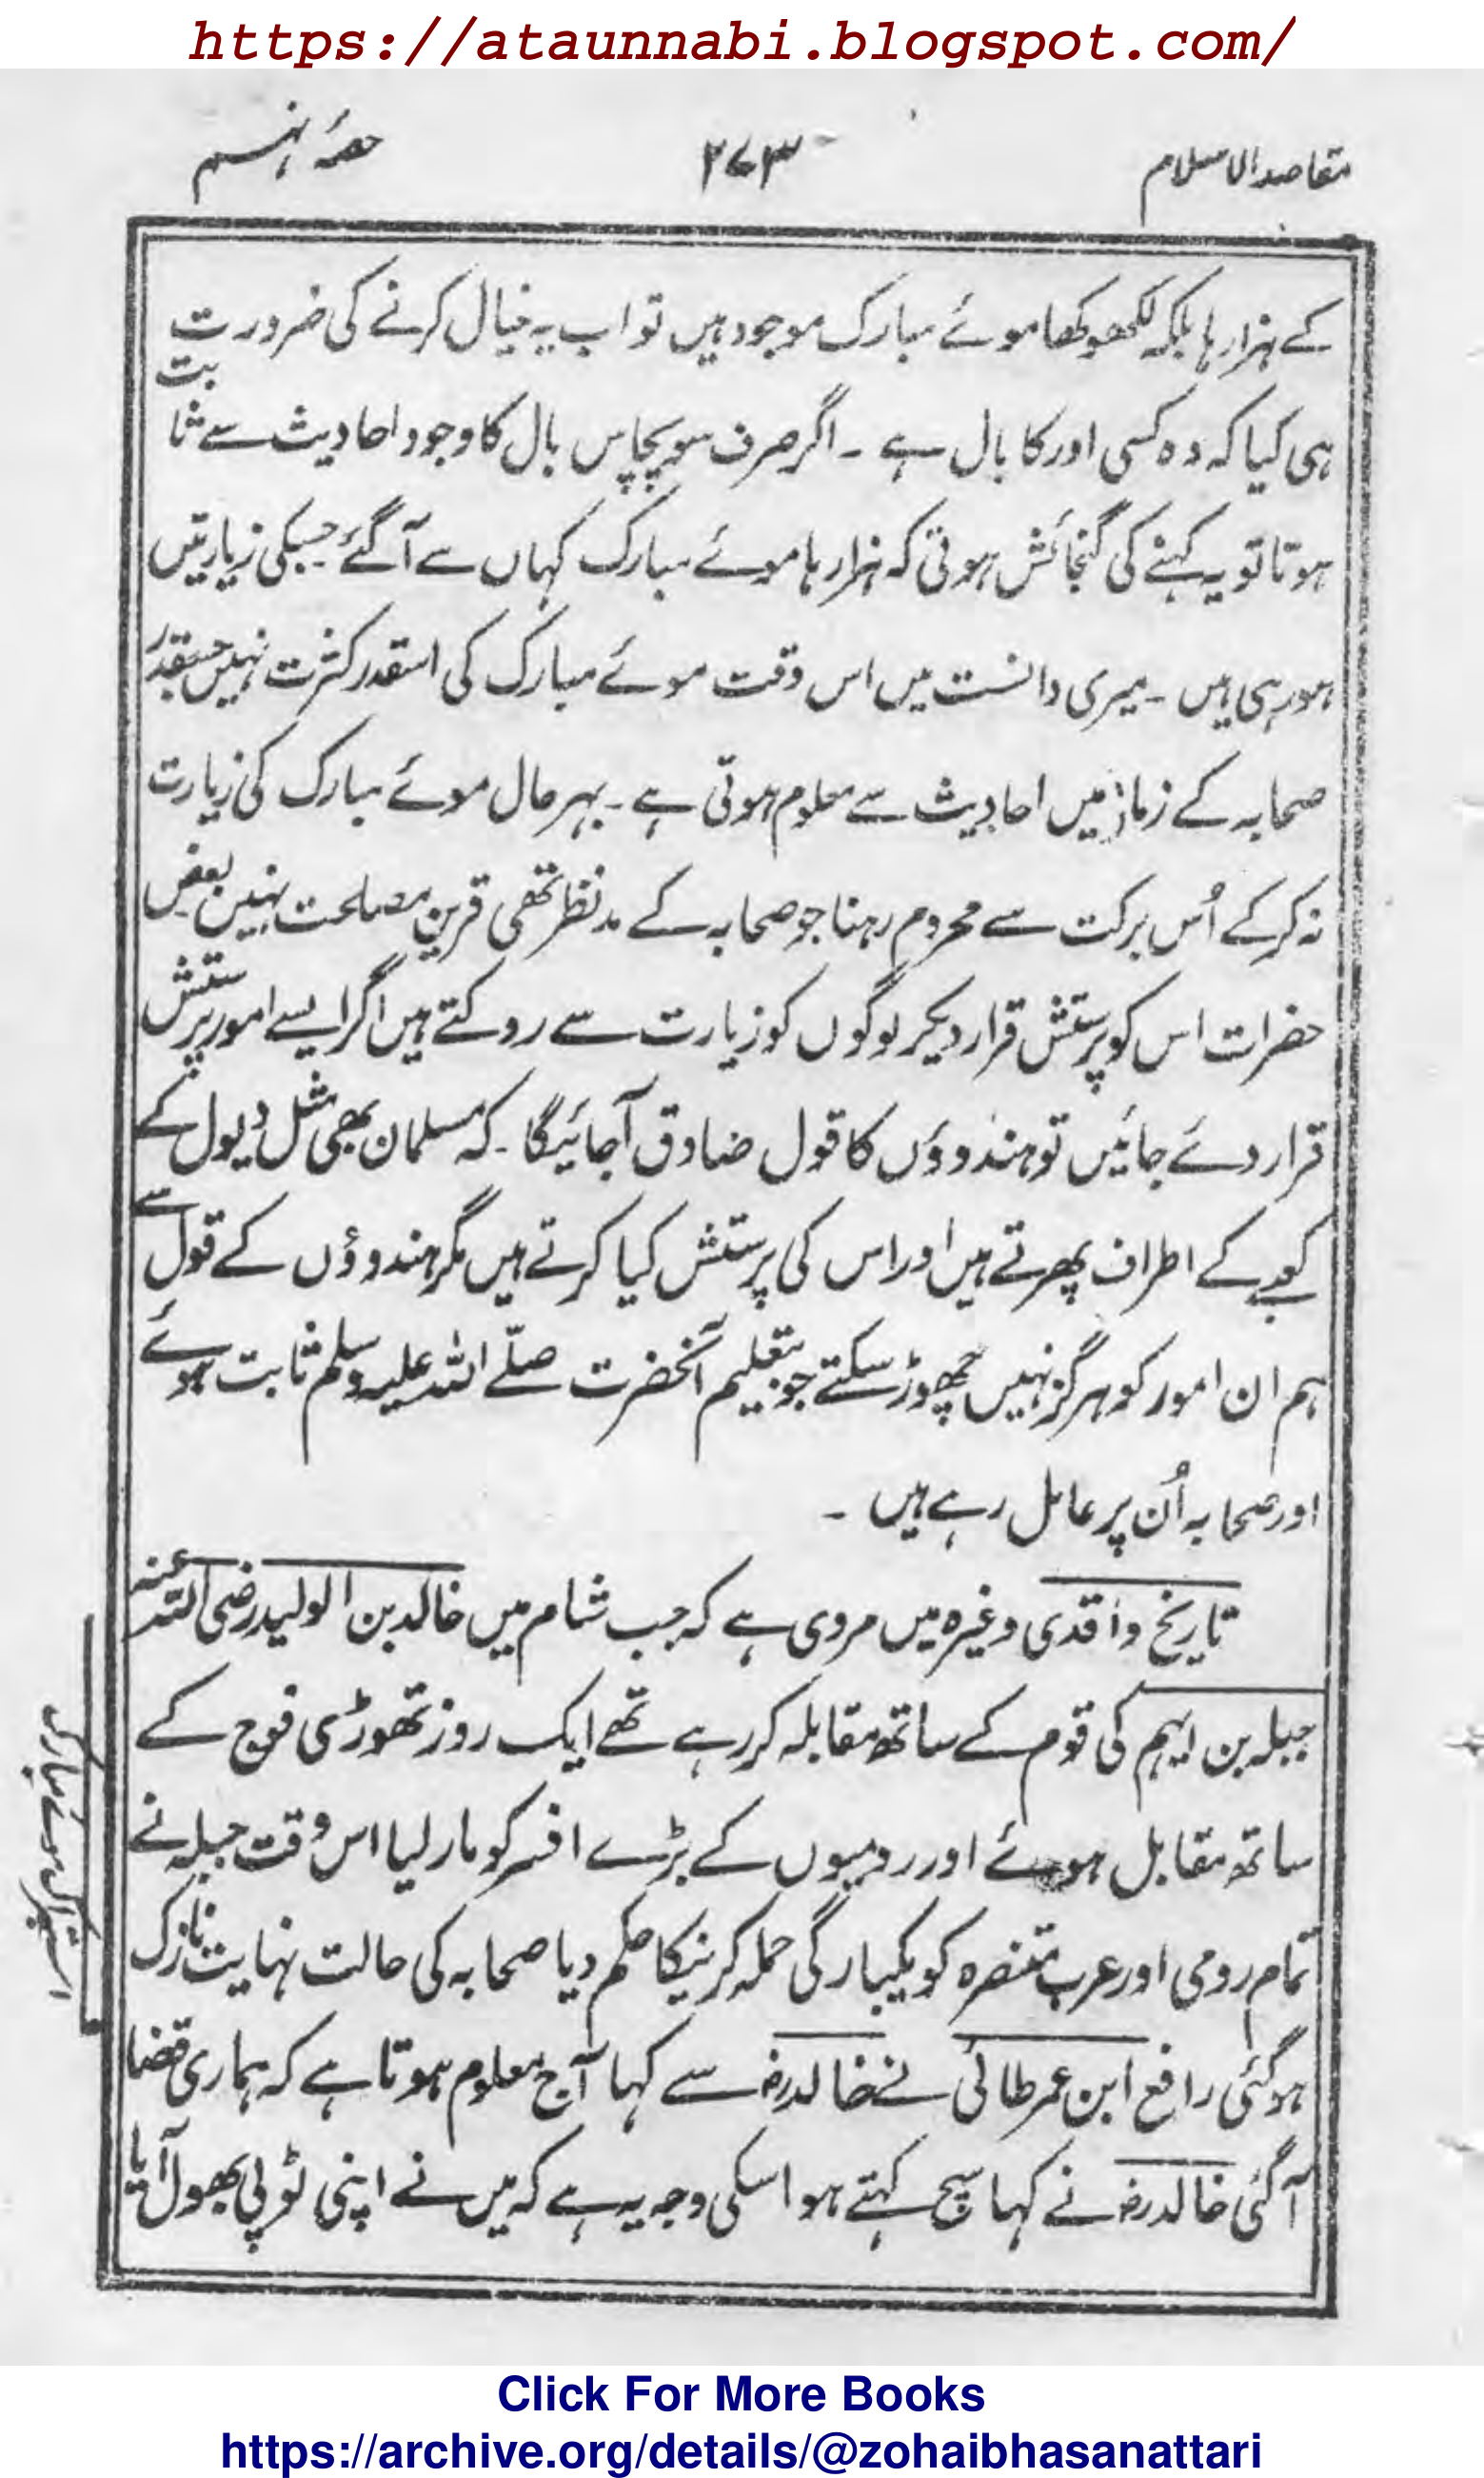 https://ataunnabi.blogspot.com/
مقاصد الاسلام ۲۷۳ حصۂ نہم
کے ہزارہا بلکہ لکھوکھا موئے مبارک موجود ہیں تو اب یہ خیال کرنے کی ضرورت
ہی کیا کہ وہ کسی اور کا بال ہے ۔ اگر صرف سو پچاس بال کا وجود احادیث سے ثابت
ہوتا تو یہ کہنے کی گنجائش ہوتی کہ ہزارہا موئے مبارک کہاں سے آگئے جسکی زیارتیں
ہو رہی ہیں ۔ میری دانست میں اس وقت موئے مبارک کی اسقدر کثرت نہیں جسقدر
صحابہ کے زمانہ میں احادیث سے معلوم ہوتی ہے ۔ بہر حال موئے مبارک کی زیارت
نہ کرکے اُس برکت سے محروم رہنا جو صحابہ کے مد نظر تھی قرین مصلحت نہیں بعض
حضرات اس کو پرستش قرار دیکر لوگوں کو زیارت سے روکتے ہیں اگر ایسے امور پرستش
قرار دئے جائیں تو ہندووٴں کا قول صادق آجائیگا ۔ کہ مسلمان بھی مثل دیول کے
کعبے کے اطراف پھرتے ہیں اور اس کی پرستش کیا کرتے ہیں مگر ہندووٴں کے قول سے
ہم ان امور کو ہرگز نہیں چھوڑ سکتے جو بتعلیم آنحضرت صلّے اللہ علیہ وسلم ثابت ہوئے
اور صحابہ اُن پر عامل رہے ہیں ۔
تاریخ واقدی وغیرہ میں مروی ہے کہ جب شام میں خالد بن الولید رضی اللہ عنہ
جبلہ بن ایہم کی قوم کے ساتھ مقابلہ کر رہے تھے ایک روز تھوڑی فوج کے
ساتھ مقابل ہوئے اور رومیوں کے بڑے افسر کو مار لیا اس وقت جبلہ نے
تمام رومی اور عرب متنصرہ کو یکبارگی حملہ کرنیکا حکم دیا صحابہ کی حالت نہایت نازک
ہوگئی رافع ابن عمر طائی نے خالدرضہ سے کہا آج معلوم ہوتا ہے کہ ہماری قضا
آگئی خالدرضہ نے کہا سچ کہتے ہو اسکی وجہ یہ ہے کہ میں نے اپنی ٹوپی بھول آیا
موئے مبارک
Click For More Books
https://archive.org/details/@zohaibhasanattari